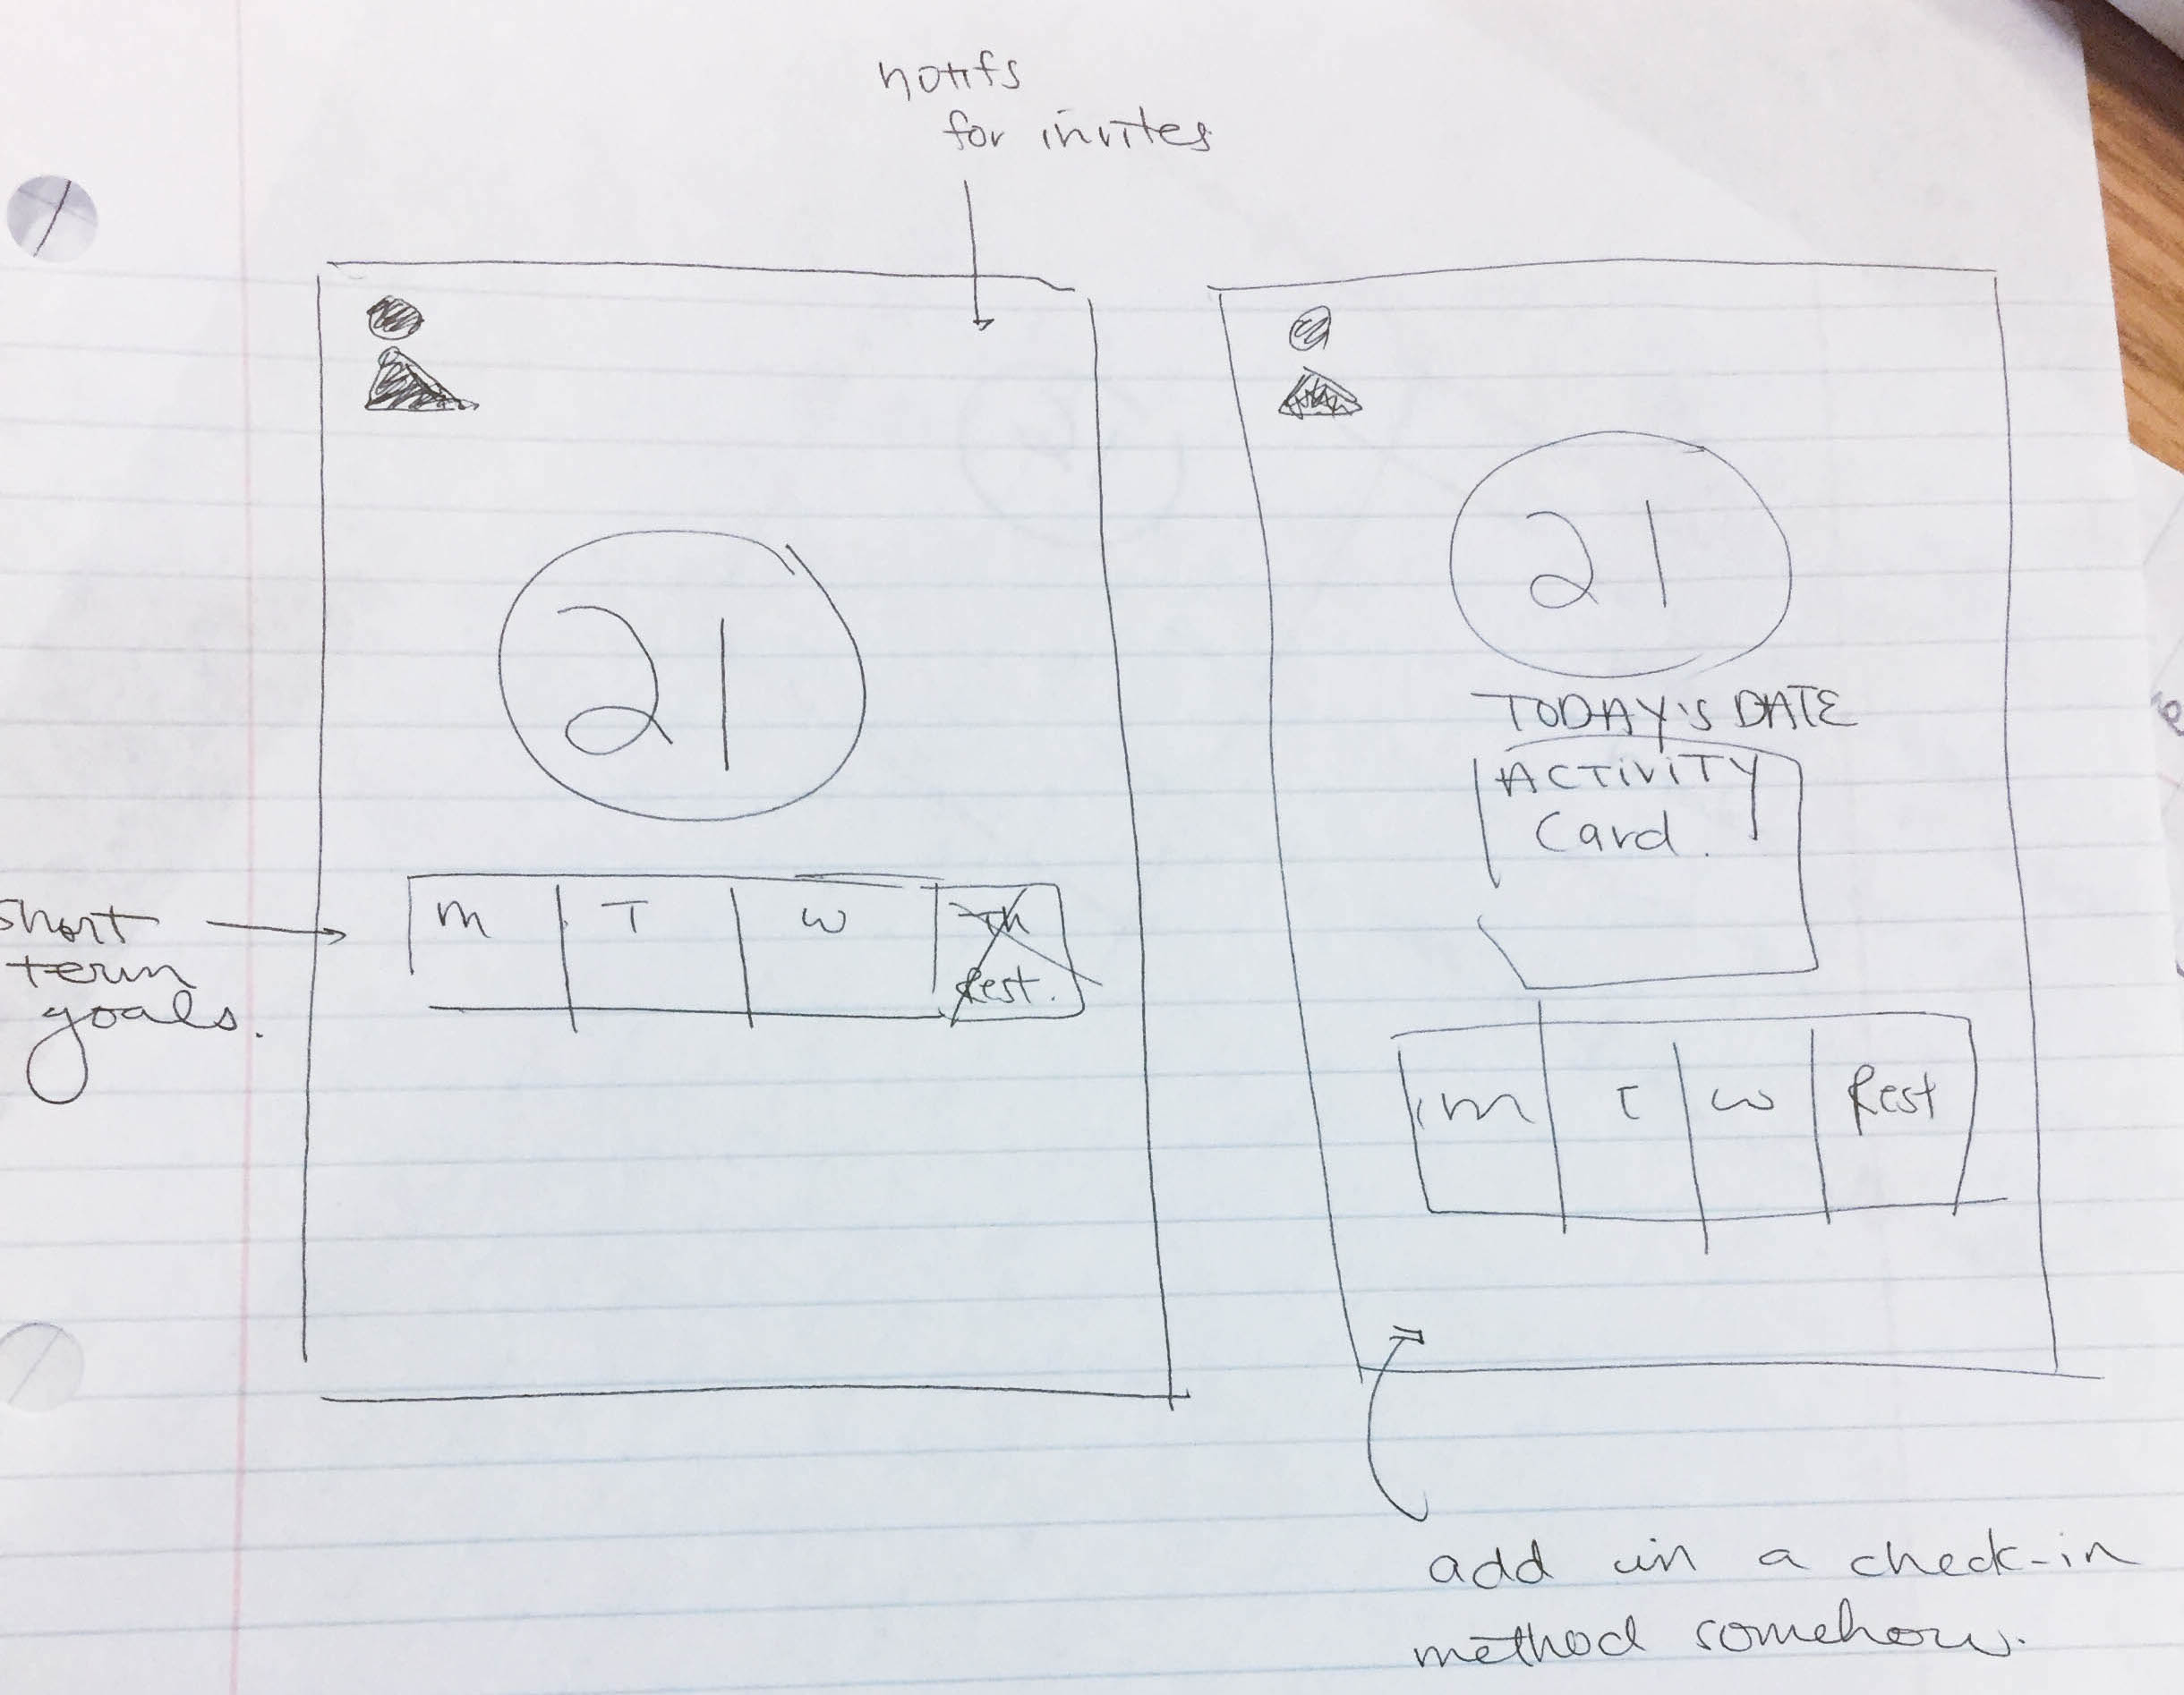 notifs
for invites
21
m T W Th
Rest.
short
term
goals.
21
TODAY'S DATE
ACTIVITY
Card.
m T W Rest
add in a check-in
method somehow.